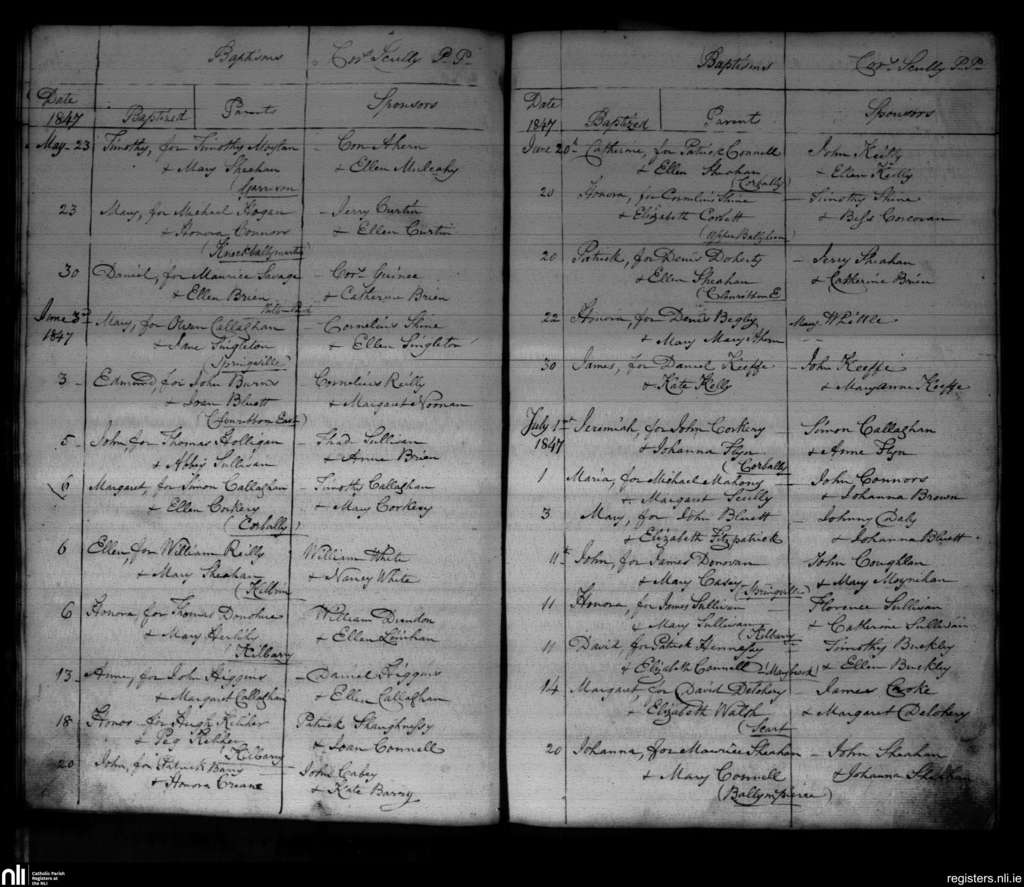 Baptisms Corns. Scully P.P.
Date 1847 Baptized Parents Sponsors
May 23 Timothy, for Timothy Moylan - Con Ahern
& Mary Sheahan & Ellen Mulcahy
(Garrison
23 Mary, for Michael Hogan - Jerry Curtin
& Honora Connors & Ellen Curtin
(Knockballymartin
30 Daniel, for Maurice Savage - Corns. Guinee
& Ellen Brien & Catherine Brien
June 3rd 1847 Mary, for Owen Callaghan - Cornelius Shine
& Jane Singleton & Ellen Singleton
(Springville)
3 - Edmund for John Burns Cornelius Reilly
& Joan Bluett & Margaret Noonan
(Clonrobbon East)
5 - John for Thomas Holligan - Thad. Sullivan
& Abbey Sullivan & Anne Brien
6 Margaret, for Simon Callaghan - Timothy Callaghan
& Ellen Corkery & Mary Corkery
(Corbally)
6 Ellen for William Reilly William White
& Mary Sheahan & Nancy White
(Kilbrin
6 Honora, for Thomas Donohue William Dundon
& Mary Herlihy & Ellen Linehan
(Kilbarry
13 - Anne, for John Higgins - Daniel Higgins
& Margaret Callaghan & Ellen Callaghan
18 Honor - for Hugh Patrick Shaughnessy
& Peg & Joan Connell
(Kilbarry
20 John, for Patrick Barry - John Cabey
& Honora Creane & Kate Barry
Baptisms Corns. Scully P.P.
Date 1847 Baptized Parents Sponsors
June 20th Catherine, for Patrick Connell John Reilly
& Ellen Sheahan & Ellen Reilly
(Corbally)
20 Honora, for Cornelius Shine - Timothy Shine
& Elizabeth Corbett & Bess Corcoran
(Upper
20 Patrick, for Denis Doherty - Jerry Sheahan
& Ellen Sheahan & Catherine Brien
(Clonrobbon E
22 Honora, for Denis Begley Mary Whittle
& Mary Mary Ahern - -
30 James, for Daniel Keeffe - John Keeffe
& Kate Kelly & Maryanne Keeffe
July 1st 1847 Jeremiah, for John Corkery - Simon Callaghan
& Johanna Flyn & Anne Flyn
(Corbally
1 Maria, for Michael Mahony - John Connors
& Margaret Scully & Johanna Brown
3 Mary, for John Bluett - Johnny Daly
& Elizabeth Fitzpatrick & Johanna Bluett
11th John, for James Donovan John Coughlan
& Mary Casey & Mary Moynihan
(Springville)
11 Honora, for James Sullivan Florence Sullivan
& Mary Sullivan & Catherine Sullivan
(Kilbarry
11 David, for Patrick Hennessy Timothy Buckley
& Elizabeth Connell & Ellen Buckley
(Marybrook)
14 Margaret, for David Delohery - James Cooke
& Elizabeth Walsh & Margaret Delohery
(Scart
20 Johanna, for Maurice Sheahan - John Sheahan
& Mary Connell & Johanna Sheahan
(Ballympierce)
nli
Catholic Parish
Registers at
the NLI
registers.nli.ie